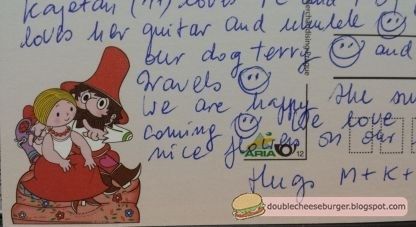 Kajetan (11) loves PC and
loves her guitar and ukulele
our dog terry and
travels
We are happy the su
coming We love
nice flowers on our
Hugs M+K+
ARIA
12
doublecheeseburger.blogspot.com